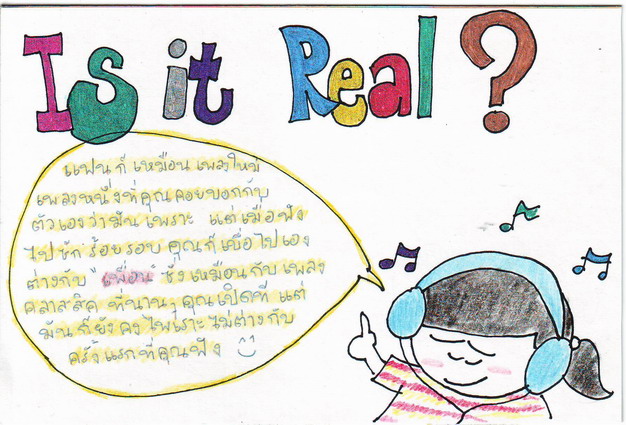 Is it Real?
แฟนก็เหมือนเพลงใหม่
เพลงหนึ่งที่คุณคอยบอกกับ
ตัวเองว่ามันเพราะ แต่เมื่อฟัง
ไปซัก ร้อยรอบ คุณก็เบื่อไปเอง
ต่างกับ "เพื่อน" ซึ่งเหมือนกับเพลง
คลาสสิค ที่นานๆ คุณเปิดที แต่
มันก็ยังคงไพเราะไม่ต่างกับ
ครั้งแรกที่คุณฟัง